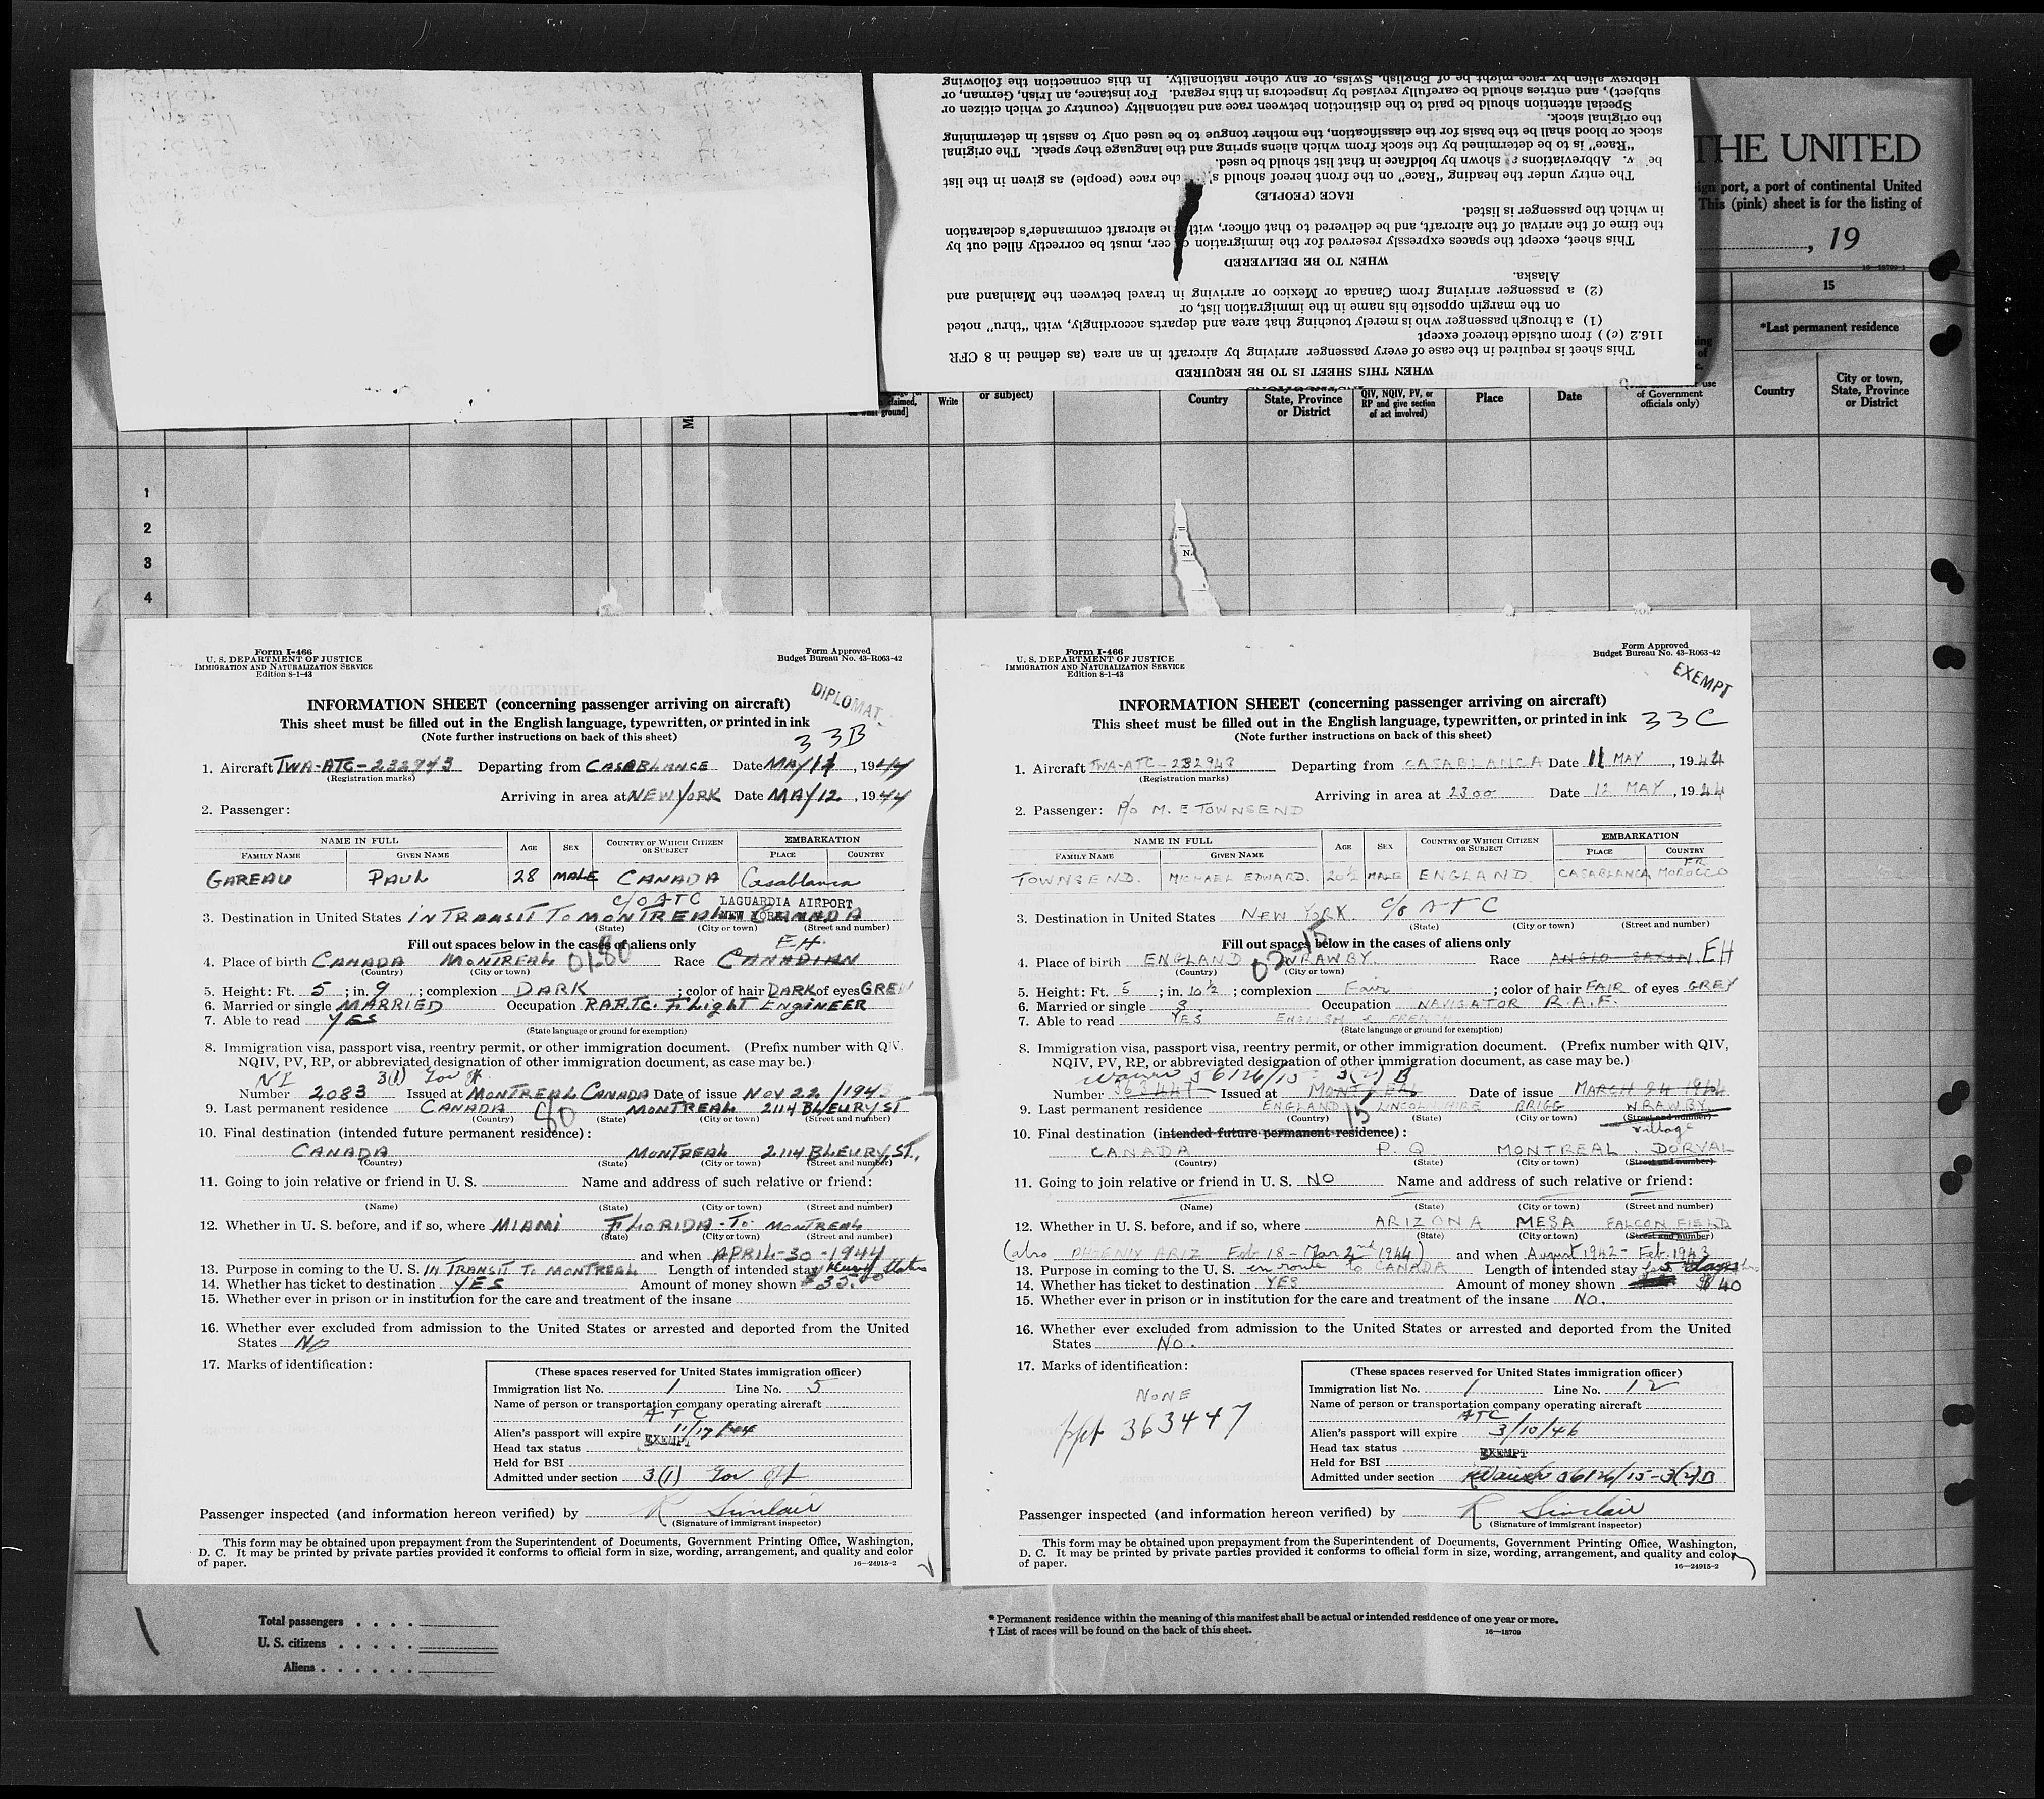 WHEN THIS SHEET IS TO BE REQUIRED
This sheet is required in the case of every passenger arriving by aircraft in an area (as defined in 8 CFR
116.2 (c)) from outside thereof except
(1) a through passenger who is merely touching that area and departs accordingly, with "thru" noted
on the margin opposite his name in the immigration list, or
(2) a passenger arriving from Canada or Mexico or arriving in travel between the Mainland and
Alaska.
WHEN TO BE DELIVERED
This sheet, except the spaces expressly reserved for the immigration cer, must be correctly filled out by
the time of the arrival of the aircraft, and be delivered to that officer, with e aircraft commander's declaration
in which the passenger is listed.
RACE (PEOPLE)
The entry under the heading "Race" on the front hereof should s the race (people) as given in the list
be w. Abbreviations shown by boldface in that list should be used.
"Race" is to be determined by the stock from which aliens spring and the language they speak. The original
stock or blood shall be the basis for the classification, the mother tongue to be used only to assist in determining
the original stock.
Special attention should be paid to the distinction between race and nationality (country of which citizen or
subject), and entries should be carefully revised by inspectors in this regard. For instance, an Irish, German, or
Hebrew alien by race might be of English, Swiss, or any other nationality. In this connection the following
THE UNITED
eign port, a port of continental United
This (pink) sheet is for the listing of
, 19
15
*Last permanent residence
Country
City or town, State, Province or District
claimed,
ground]
Write
or subject)
Country
State, Province or District
QIV, NQIV, PV, or RP and give section of act involved)
Place
Date
use of Government officials only)
1
2
3
4
Form I-466
U. S. DEPARTMENT OF JUSTICE
IMMIGRATION AND NATURALIZATION SERVICE
Edition 8-1-43
Form Approved
Budget Bureau No. 43-R063-42
DIPLOMAT
INFORMATION SHEET (concerning passenger arriving on aircraft)
This sheet must be filled out in the English language, typewritten, or printed in ink
(Note further instructions on back of this sheet)
33B
1. Aircraft TWA-ATC-232943 Departing from CASABLANCE Date MAY 11, 1944
(Registration marks)
Arriving in area at NEW YORK Date MAY 12, 1944
2. Passenger:
NAME IN FULL AGE SEX COUNTRY OF WHICH CITIZEN OR SUBJECT EMBARKATION
FAMILY NAME GIVEN NAME PLACE COUNTRY
GAREAU PAUL 28 MALE CANADA Casablanca
C/O ATC LAGUARDIA AIRPORT
NEW YORK
3. Destination in United States IN TRANSIT TO MONTREAL CANADA
(State) (City or town) (Street and number)
Fill out spaces below in the cases of aliens only
EH.
4. Place of birth CANADA MONTREAL 0180 Race CANADIAN
(Country) (City or town)
5. Height: Ft. 5; in. 9; complexion DARK; color of hair DARK of eyes GREY
6. Married or single MARRIED Occupation R.A.F.T.C. Flight Engineer
7. Able to read YES
(State language or ground for exemption)
8. Immigration visa, passport visa, reentry permit, or other immigration document. (Prefix number with QIV,
NQIV, PV, RP, or abbreviated designation of other immigration document, as case may be.)
3(1) Gov Off
Number 2083 Issued at MONTREAL CANADA Date of issue NOV 22 /1943
9. Last permanent residence CANADA 80 MONTREAL 2114 BLEURY ST
(Country) (State) (City or town) (Street and number)
10. Final destination (intended future permanent residence):
CANADA MONTREAL 2114 BLEURY ST.
(Country) (State) (City or town) (Street and number)
11. Going to join relative or friend in U. S. Name and address of such relative or friend:
(Name) (State) (City or town) (Street and number)
12. Whether in U. S. before, and if so, where MIAMI FLORIDA-TO MONTREAL
(State) (City or town) (Street and number)
and when APRIL-30-1944
13. Purpose in coming to the U. S. IN TRANSIT TO MONTREAL Length of intended stay
14. Whether has ticket to destination YES Amount of money shown $35.00
15. Whether ever in prison or in institution for the care and treatment of the insane
16. Whether ever excluded from admission to the United States or arrested and deported from the United
States No
17. Marks of identification:
(These spaces reserved for United States immigration officer)
Immigration list No. 1 Line No. 5
Name of person or transportation company operating aircraft
ATC
Alien's passport will expire 11/17/44
Head tax status EXEMPT
Held for BSI
Admitted under section 3(1) Gov Off
Passenger inspected (and information hereon verified) by R Sinclair
(Signature of immigrant inspector)
This form may be obtained upon prepayment from the Superintendent of Documents, Government Printing Office, Washington,
D. C. It may be printed by private parties provided it conforms to official form in size, wording, arrangement, and quality and color
of paper.
16—24915-2
Form I-466
U. S. DEPARTMENT OF JUSTICE
IMMIGRATION AND NATURALIZATION SERVICE
Edition 8-1-43
Form Approved
Budget Bureau No. 43-R063-42
EXEMPT
INFORMATION SHEET (concerning passenger arriving on aircraft)
This sheet must be filled out in the English language, typewritten, or printed in ink
33C
(Note further instructions on back of this sheet)
1. Aircraft TWA-ATC-232943 Departing from CASABLANCA Date 11 MAY, 1944
(Registration marks)
Arriving in area at 2300 Date 12 MAY, 1944
2. Passenger: P/O M. E TOWNSEND
NAME IN FULL AGE SEX COUNTRY OF WHICH CITIZEN OR SUBJECT EMBARKATION
FAMILY NAME GIVEN NAME PLACE COUNTRY
TOWNSEND. MICHAEL EDWARD. 20½ MALE ENGLAND. CASABLANCA FR. MOROCCO
3. Destination in United States NEW YORK. C/O ATC
(State) (City or town) (Street and number)
Fill out spaces below in the cases of aliens only
4. Place of birth ENGLAND 02 15 WRAWBY. Race ANGLO-SAXON. EH
(Country) (City or town)
5. Height: Ft. 5; in. 10½; complexion Fair; color of hair FAIR of eyes GREY
6. Married or single S. Occupation NAVIGATOR R.A.F.
7. Able to read YES. ENGLISH & FRENCH
(State language or ground for exemption)
8. Immigration visa, passport visa, reentry permit, or other immigration document. (Prefix number with QIV,
NQIV, PV, RP, or abbreviated designation of other immigration document, as case may be.)
Waiver 56126/15 3(2) B
Number 363447 Issued at MONTREAL Date of issue MARCH 24 1944
9. Last permanent residence ENGLAND 15 LINCOLNSHIRE BRIGG WRAWBY
(Country) (State) (City or town) (Street and number)
village
10. Final destination (intended future permanent residence):
CANADA P. Q. MONTREAL. DORVAL
(Country) (State) (City or town) (Street and number)
11. Going to join relative or friend in U. S. NO Name and address of such relative or friend:
(Name) (State) (City or town) (Street and number)
12. Whether in U. S. before, and if so, where ARIZONA MESA FALCON FIELD
(State) (City or town) (Street and number)
(also PHOENIX ARIZ Feb 18 - Mar 2nd 1944) and when August 1942 - Feb. 1943
13. Purpose in coming to the U. S. en route to CANADA Length of intended stay
14. Whether has ticket to destination YES Amount of money shown $40
15. Whether ever in prison or in institution for the care and treatment of the insane No.
16. Whether ever excluded from admission to the United States or arrested and deported from the United
States No.
17. Marks of identification:
NONE
ppt 363447
(These spaces reserved for United States immigration officer)
Immigration list No. 1 Line No. 12
Name of person or transportation company operating aircraft
ATC
Alien's passport will expire 3/10/46
Head tax status EXEMPT
Held for BSI
Admitted under section Waiver 56126/15-3(2)B
Passenger inspected (and information hereon verified) by R Sinclair
(Signature of immigrant inspector)
This form may be obtained upon prepayment from the Superintendent of Documents, Government Printing Office, Washington,
D. C. It may be printed by private parties provided it conforms to official form in size, wording, arrangement, and quality and color
of paper.
16—24915-2
Total passengers . . . .
U. S. citizens . . . . .
Aliens . . . . . .
* Permanent residence within the meaning of this manifest shall be actual or intended residence of one year or more.
† List of races will be found on the back of this sheet.
16—18709